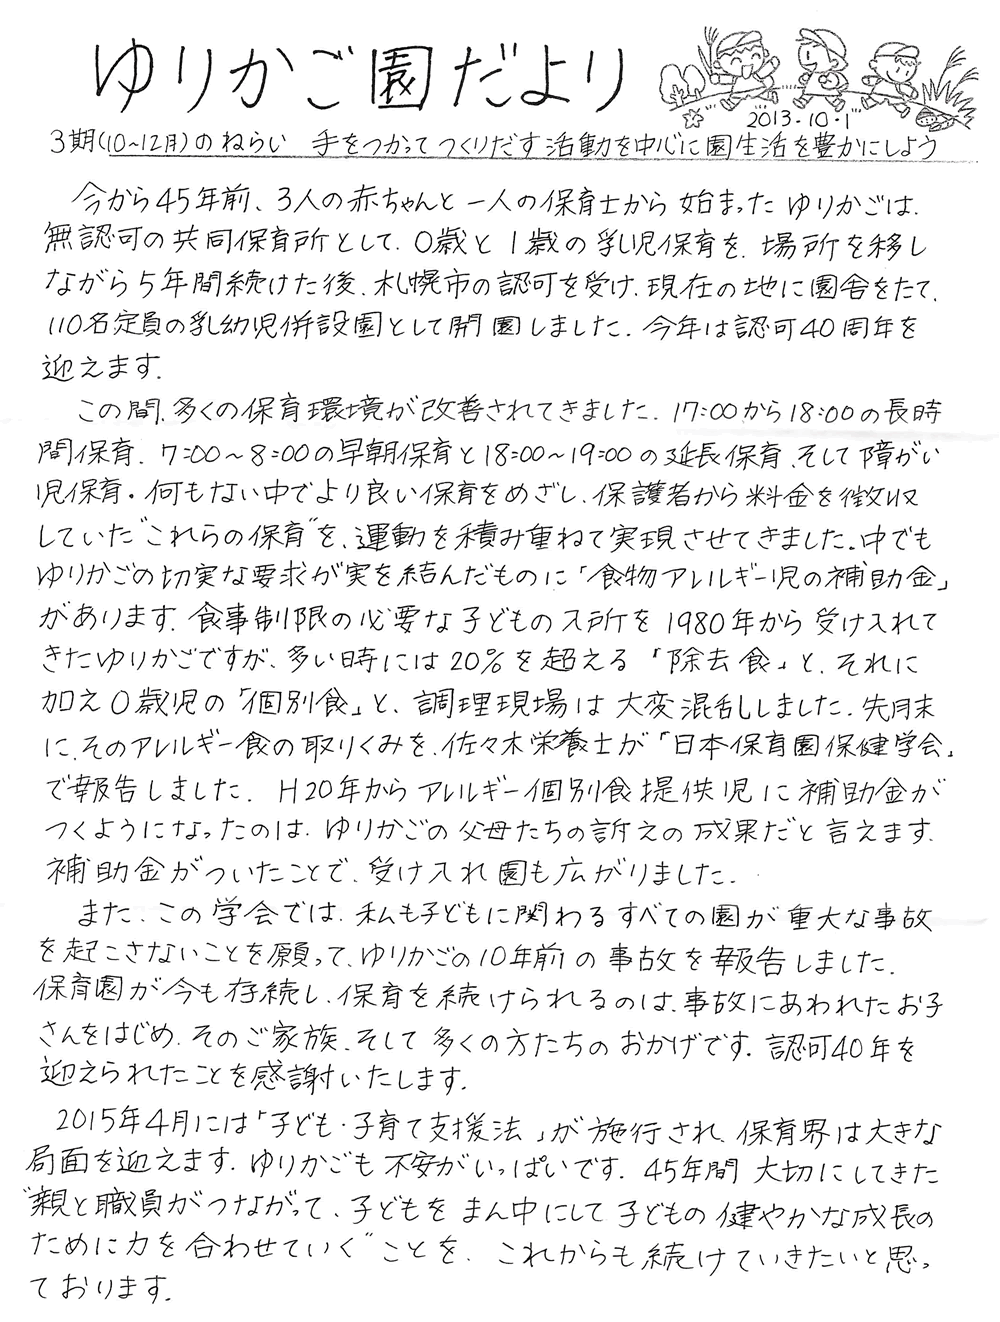 ゆりかご園だより
2013.10.1
3期(10~12月)のねらい 手をつかってつくりだす活動を中心に園生活を豊かにしよう
今から45年前、3人の赤ちゃんと一人の保育士から始まったゆりかごは、
無認可の共同保育所として、0歳と1歳の乳児保育を、場所を移し
ながら5年間続けた後、札幌市の認可を受け、現在の地に園舎をたて、
110名定員の乳幼児併設園として開園しました。今年は認可40周年を
迎えます。
この間、多くの保育環境が改善されてきました。17:00から18:00の長時
間保育、7:00~8:00の早朝保育と18:00~19:00の延長保育、そして障がい
児保育・何もない中でより良い保育をめざし、保護者から料金を徴収
していた"これらの保育"を、運動を積み重ねて実現させてきました。中でも
ゆりかごの切実な要求が実を結んだものに「食物アレルギー児の補助金」
があります。食事制限の必要な子どもの入所を1980年から受け入れて
きたゆりかごですが、多い時には20%を超える「除去食」と、それに
加え0歳児の「個別食」と、調理現場は大変混乱しました。先月末
に、そのアレルギー食の取りくみを、佐々木栄養士が「日本保育園保健学会」
で報告しました。H20年からアレルギー個別食提供児に補助金が
つくようになったのは、ゆりかごの父母たちの訴えの成果だと言えます。
補助金がついたことで、受け入れ園も広がりました。
また、この学会では、私も子どもに関わるすべての園が重大な事故
を起こさないことを願って、ゆりかごの10年前の事故を報告しました。
保育園が今も存続し、保育を続けられるのは、事故にあわれたお子
さんをはじめ、そのご家族、そして多くの方たちのおかげです。認可40年を
迎えられたことを感謝いたします。
2015年4月には「子ども・子育て支援法」が施行され、保育界は大きな
局面を迎えます。ゆりかごも不安がいっぱいです。45年間大切にしてきた
"親と職員がつながって、子どもをまん中にして子どもの健やかな成長の
ために力を合わせていく"ことを、これからも続けていきたいと思っ
ております。